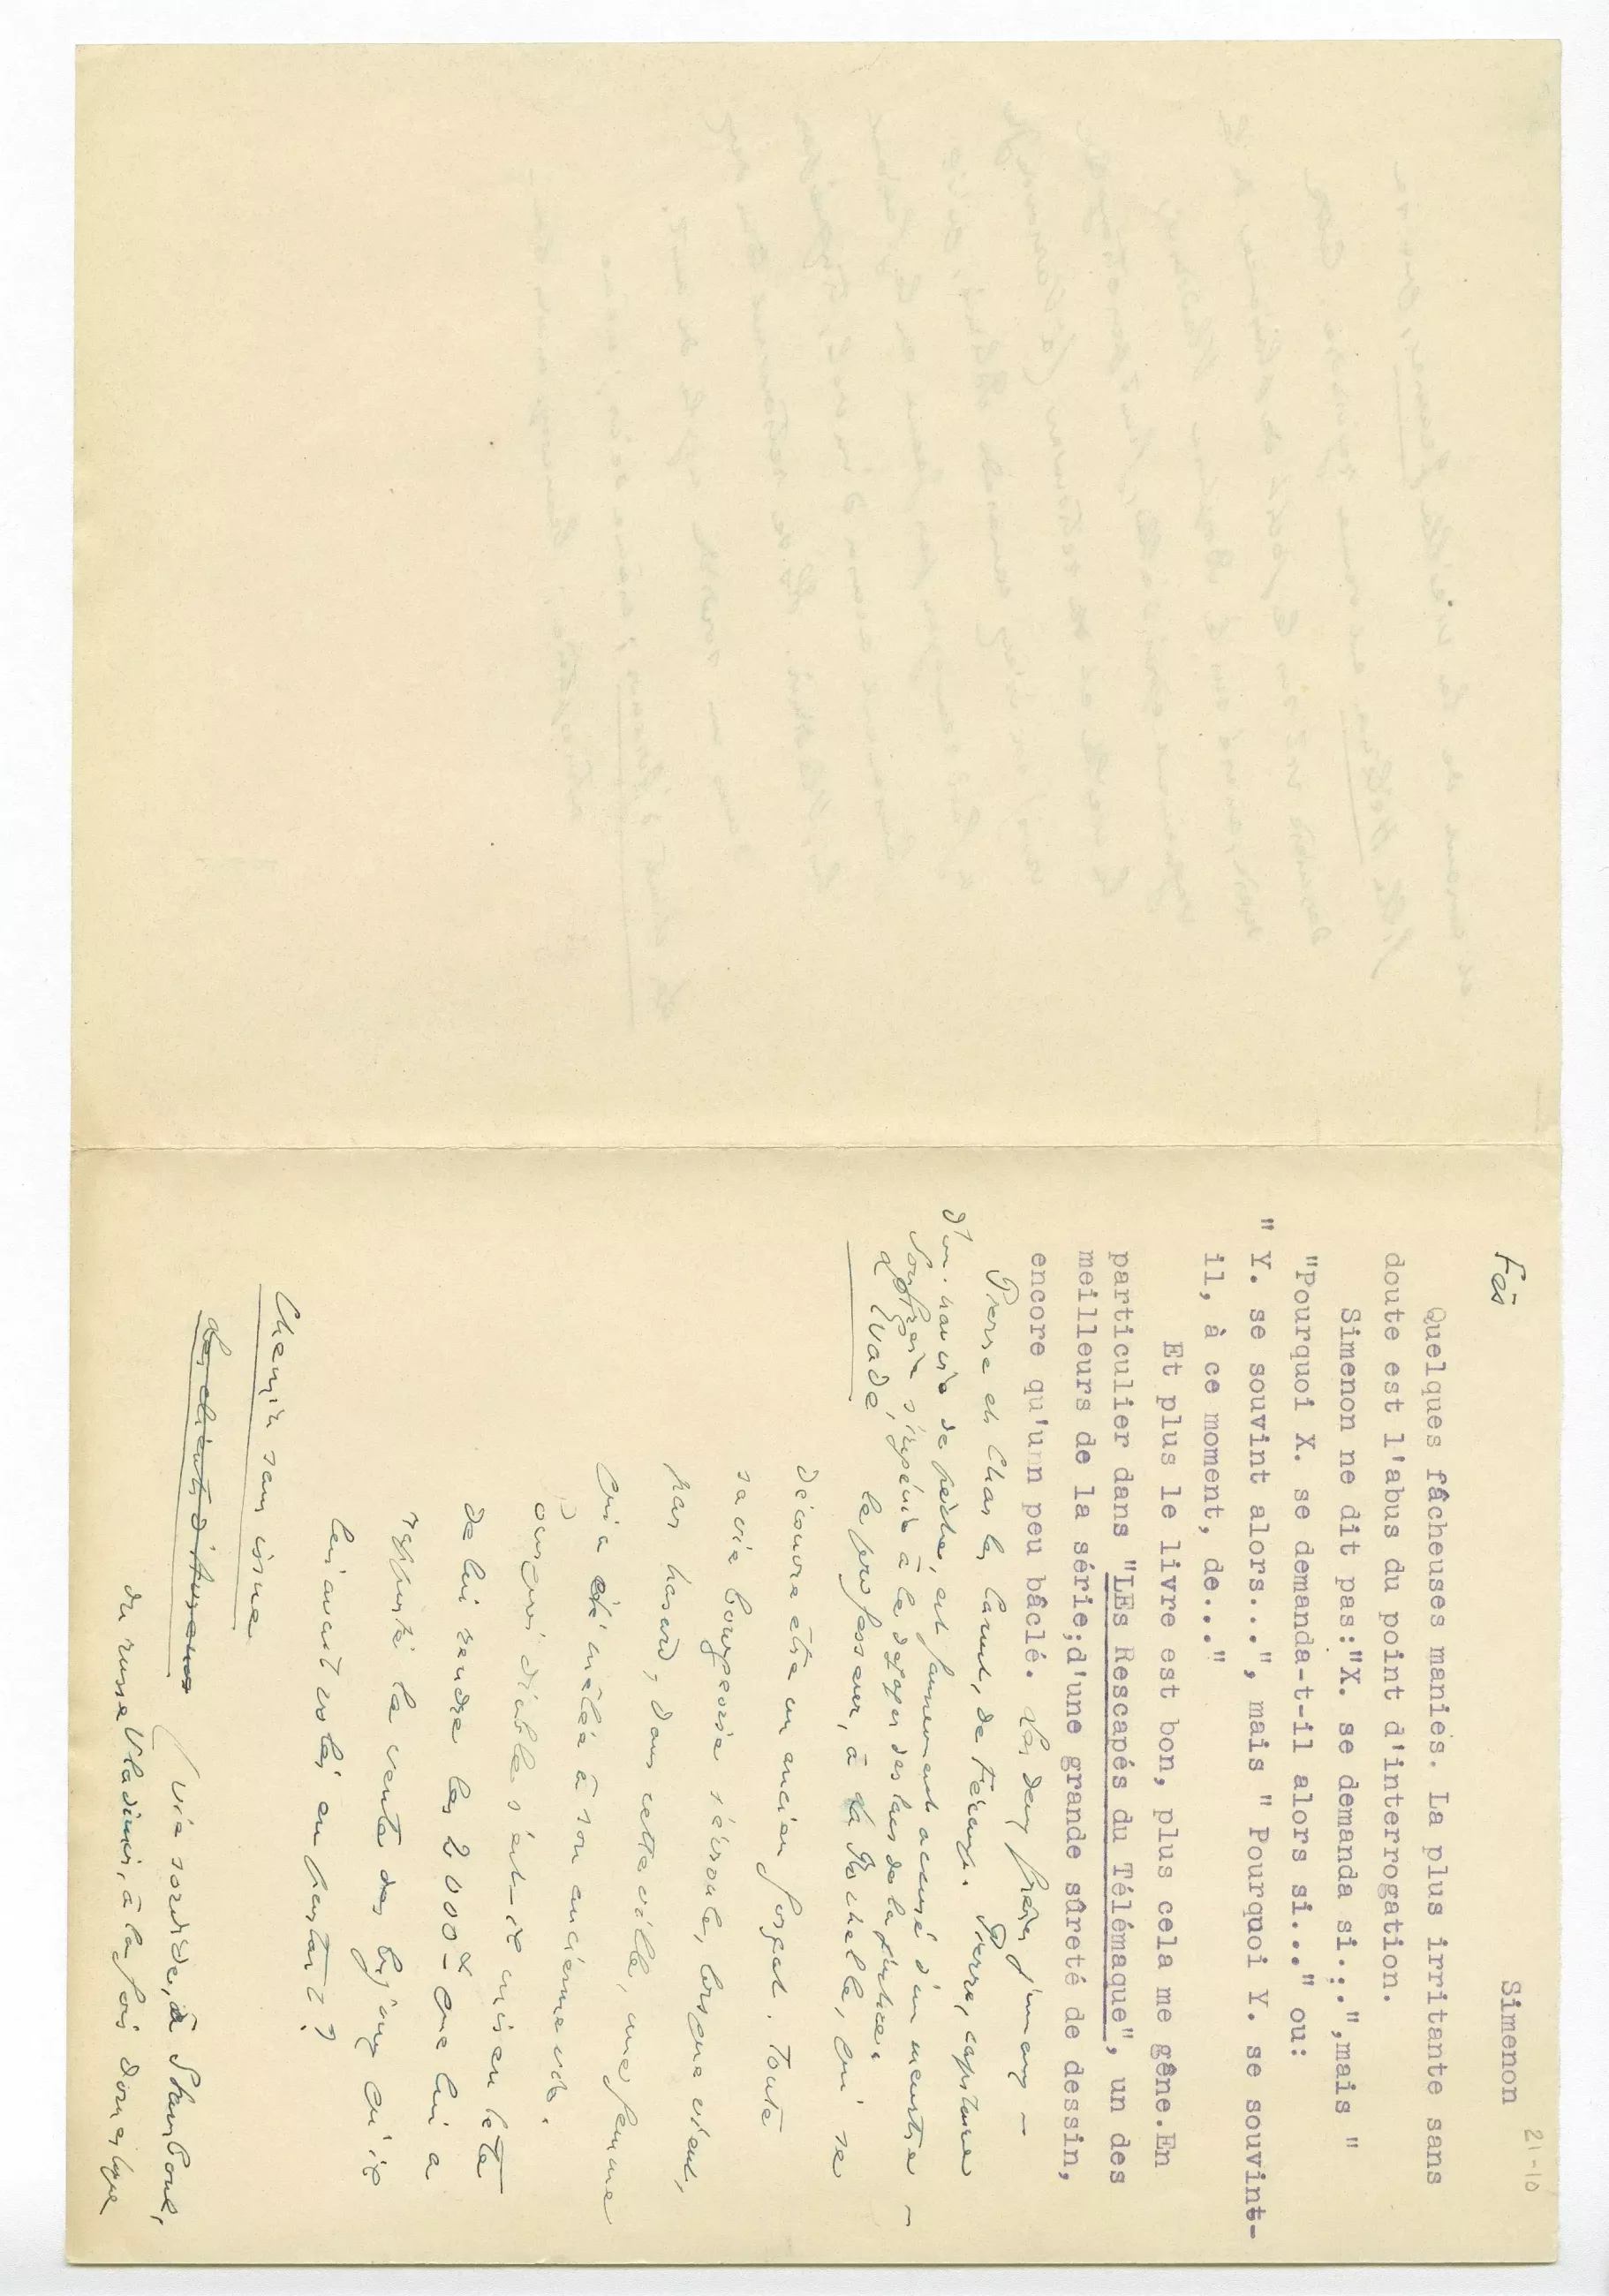 21-10
Simenon
Fès
Quelques fâcheuses manies. La plus irritante sans
doute est l'abus du point d'interrogation.
Simenon ne dit pas:"X. se demanda si...",mais "
"Pourquoi X. se demanda-t-il alors si..." ou:
" Y. se souvint alors...", mais " Pourquoi Y. se souvint-
il, à ce moment, de..."
Et plus le livre est bon, plus cela me gêne.En
particulier dans "LEs Rescapés du Télémaque", un des
meilleurs de la série;d'une grande sûreté de dessin,
encore qu'un peu bâclé. Les deux frères jumeaux -
Pierre et Charles Canut, de Fécamp. Pierre, capitaine
d'un navire de pêche, est faussement accusé d'un meurtre -
Son frère s'ingénie à le dégager des lacs de la justice.
L'Evadé, le professeur, à La Rochelle, qui se
découvre être un ancien forçat. Toute
sa vie bourgeoise s'écroule, lorsque vient,
par hasard, dans cette ville, une femme
qui a été mêlée à son ancienne vie.
où diable s'est-il mis en tête
de lui rendre les 2000 que lui a
rapporté la vente des bijoux qu'il
lui avait volés en partant ?
Chemin sans issue
Les clients d'Avrenos (vie sordide, à Stamboul,
du russe Vladimir, à la fois domestique